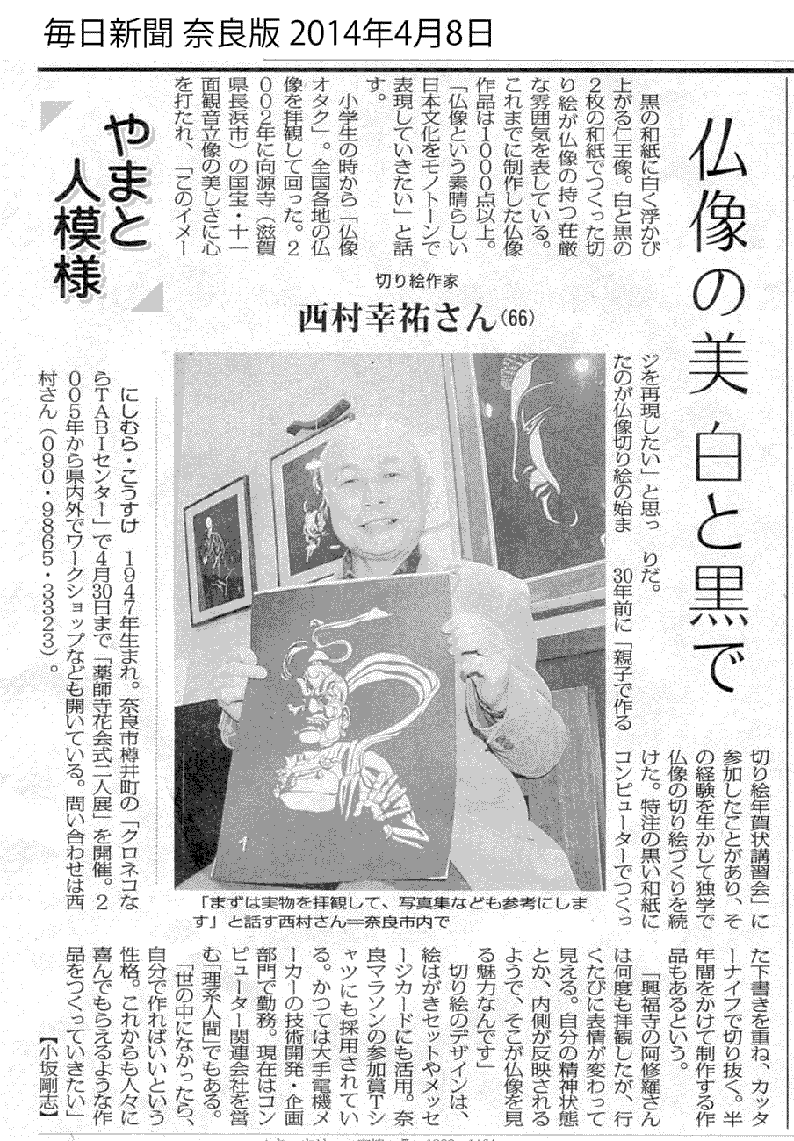 毎日新聞 奈良版 2014年4月8日
仏像の美 白と黒で
やまと
人模様
切り絵作家
西村幸祐さん(66)
黒の和紙に白く浮かび
上がる仁王像。白と黒の
２枚の和紙でつくった切
り絵が仏像の持つ荘厳
な雰囲気を表している。
これまでに制作した仏像
作品は１０００点以上。
「仏像という素晴らしい
日本文化をモノトーンで
表現していきたい」と話
す。
小学生の時から「仏像
オタク」。全国各地の仏
像を拝観して回った。２
００２年に向源寺（滋賀
県長浜市）の国宝・十一
面観音立像の美しさに心
を打たれ、「このイメー
ジを再現したい」と思っ
たのが仏像切り絵の始ま
りだ。
30年前に「親子で作る
切り絵年賀状講習会」に
参加したことがあり、そ
の経験を生かして独学で
仏像の切り絵づくりを続
けた。特注の黒い和紙に
コンピューターでつくっ
た下書きを重ね、カッタ
ーナイフで切り抜く。半
年間をかけて制作する作
品もあるという。
「興福寺の阿修羅さん
は何度も拝観したが、行
くたびに表情が変わって
見える。自分の精神状態
とか、内側が反映される
ようで、そこが仏像を見
る魅力なんです」
切り絵のデザインは、
絵はがきセットやメッセ
ージカードにも活用。奈
良マラソンの参加賞Ｔシ
ャツにも採用されてい
る。かつては大手電機メ
ーカーの技術開発・企画
部門で勤務。現在はコン
ピューター関連会社を営
む「理系人間」でもある。
「世の中になかったら、
自分で作ればいいという
性格。これからも人々に
喜んでもらえるような作
品をつくっていきたい」
【小坂剛志】
「まずは実物を拝観して、写真集なども参考にしま
す」と話す西村さん＝奈良市内で
にしむら・こうすけ　１９４７年生まれ。奈良市樽井町の「クロネコな
らＴＡＢＩセンター」で４月30日まで「薬師寺花会式二人展」を開催。２
００５年から県内外でワークショップなども開いている。問い合わせは西
村さん（０９０・９８６５・３３２３）。